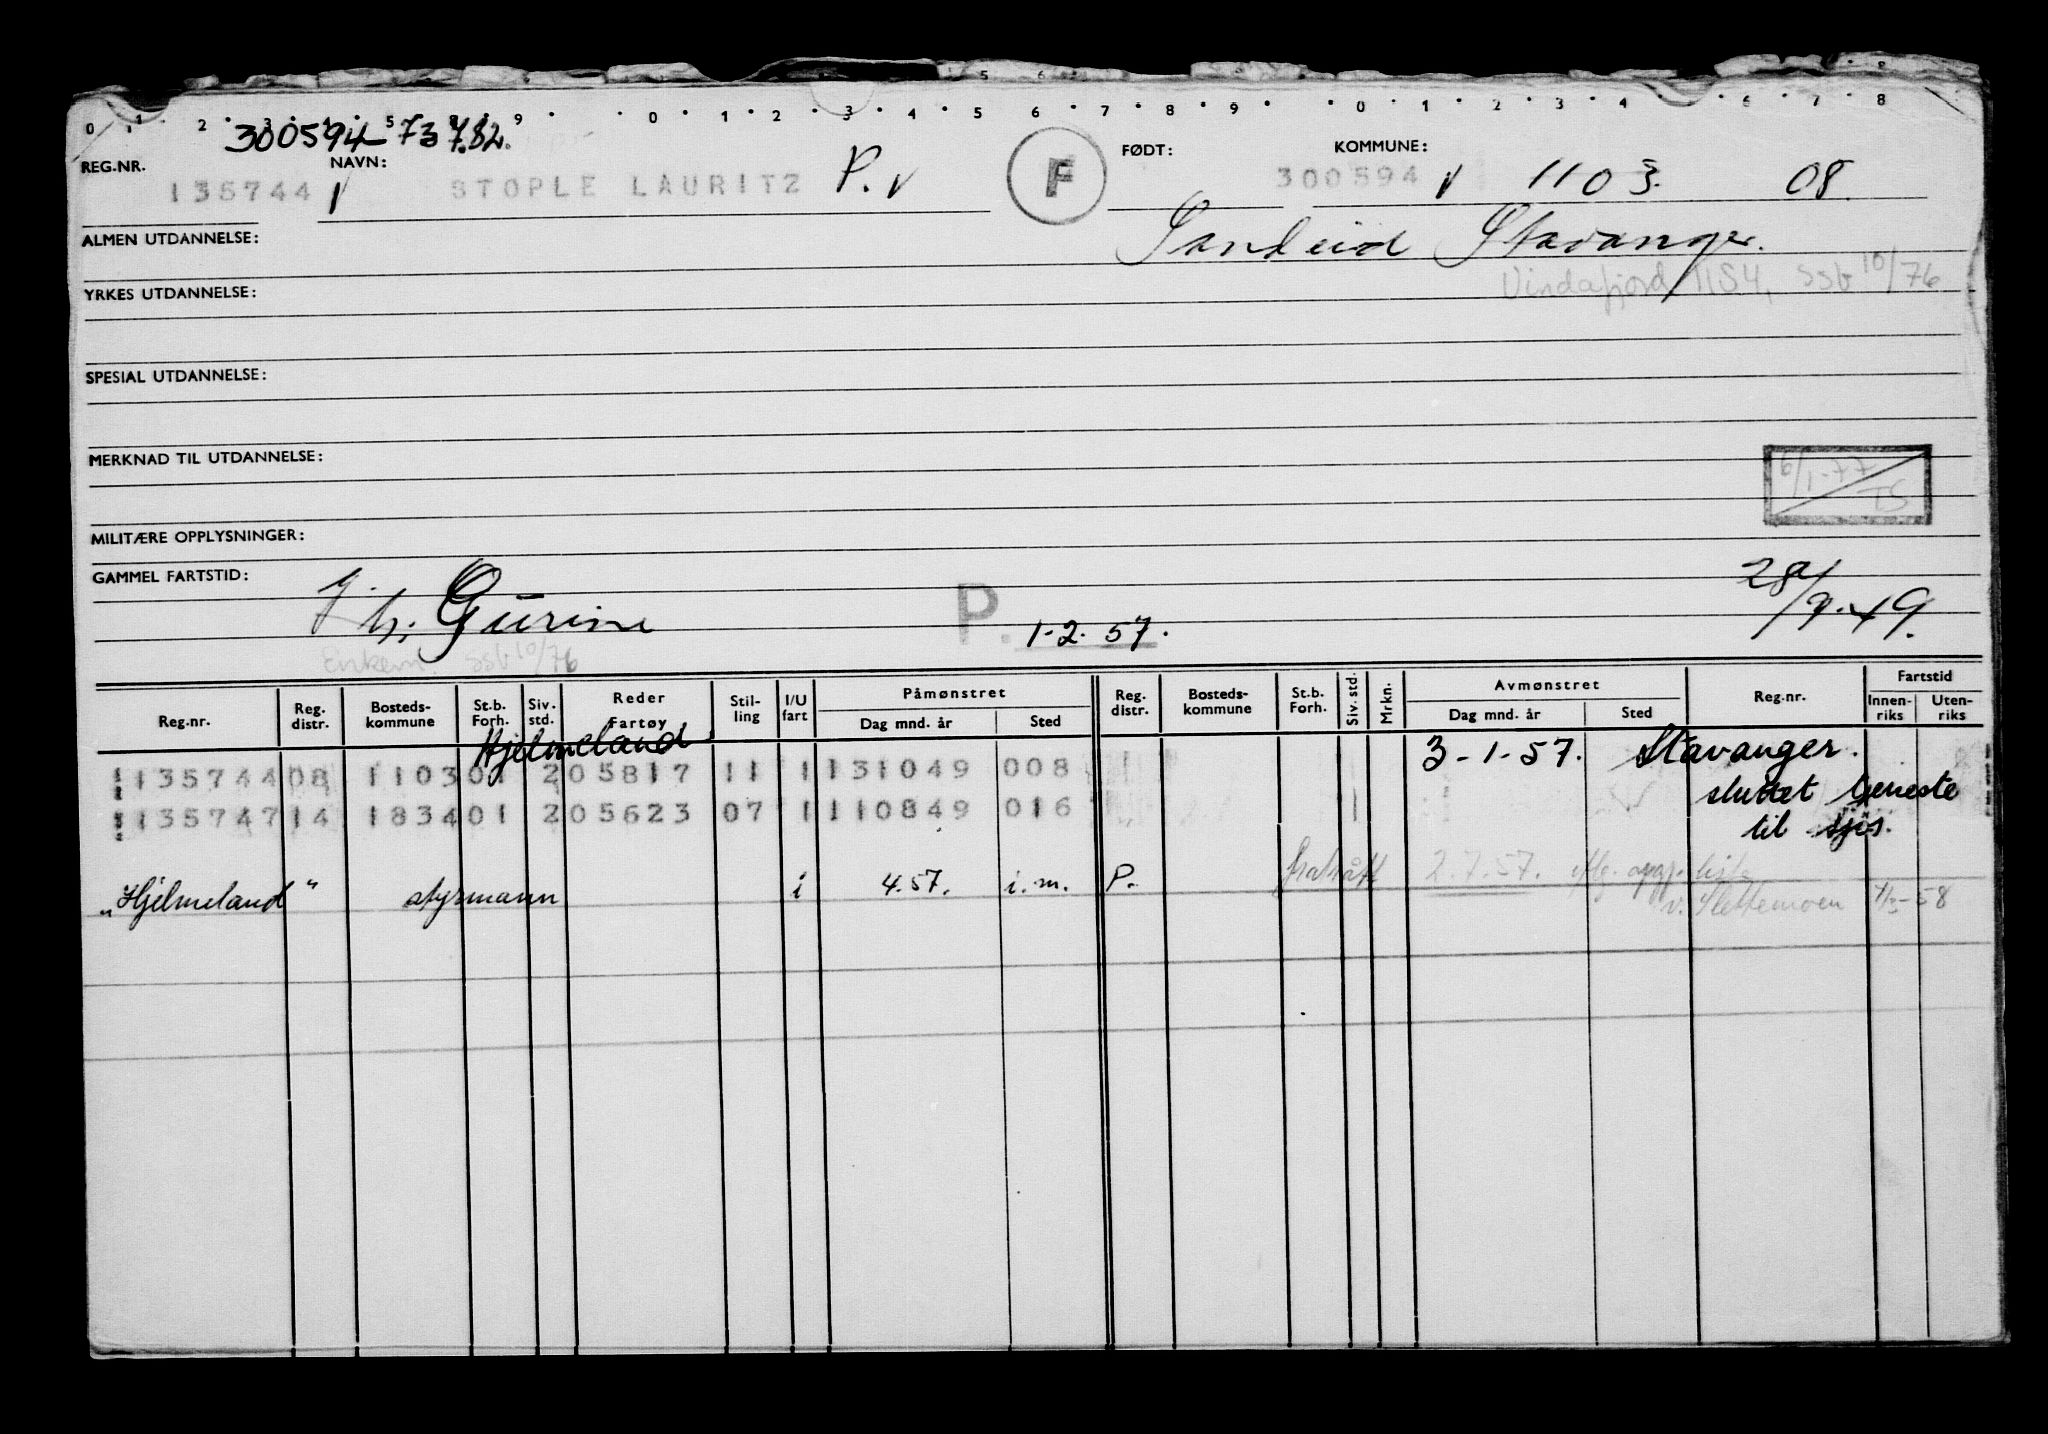 0 1 2 3 4 5 8 9 0 1 2 3 4 5 6 7 8 9 0 1 2 3 4 6 7 8
300594 73782.
REG.NR. NAVN: FØDT: KOMMUNE:
135744 STOPLE LAURITZ P. F 300594 1103. 08.
ALMEN UTDANNELSE: Sandeid Stavanger.
YRKES UTDANNELSE: Vindafjord 1154, SSb 10/76
SPESIAL UTDANNELSE:
MERKNAD TIL UTDANNELSE: 6/1-77 TS
MILITÆRE OPPLYSNINGER:
GAMMEL FARTSTID: h. Gurine P. 1-2. 57. 28/9.49.
SSb 10/76
Reg.nr. Reg. distr. Bosteds-kommune St.b. Forh. Siv. std. Reder Fartøy Stil-ling I/U fart Påmønstret Dag mnd. år Sted Reg. distr. Bosteds-kommune St.b. Forh. Siv. std. Mrkn. Avmønstret Dag mnd. år Sted Reg.nr. Fartstid Innen-riks Uten-riks
Hjelmeland 3-1-57. Stavanger.
135744 08 1103 01 2 05817 11 1 131049 008 sluttet tjeneste
135747 14 1834 01 2 05623 07 1 110849 016 til sjøs.
"Hjelmeland" styrmann i 4.57. i.m. P. fratrått 2.7.57. iflg. oppg. liste
v. Slettemoen 1/2-58